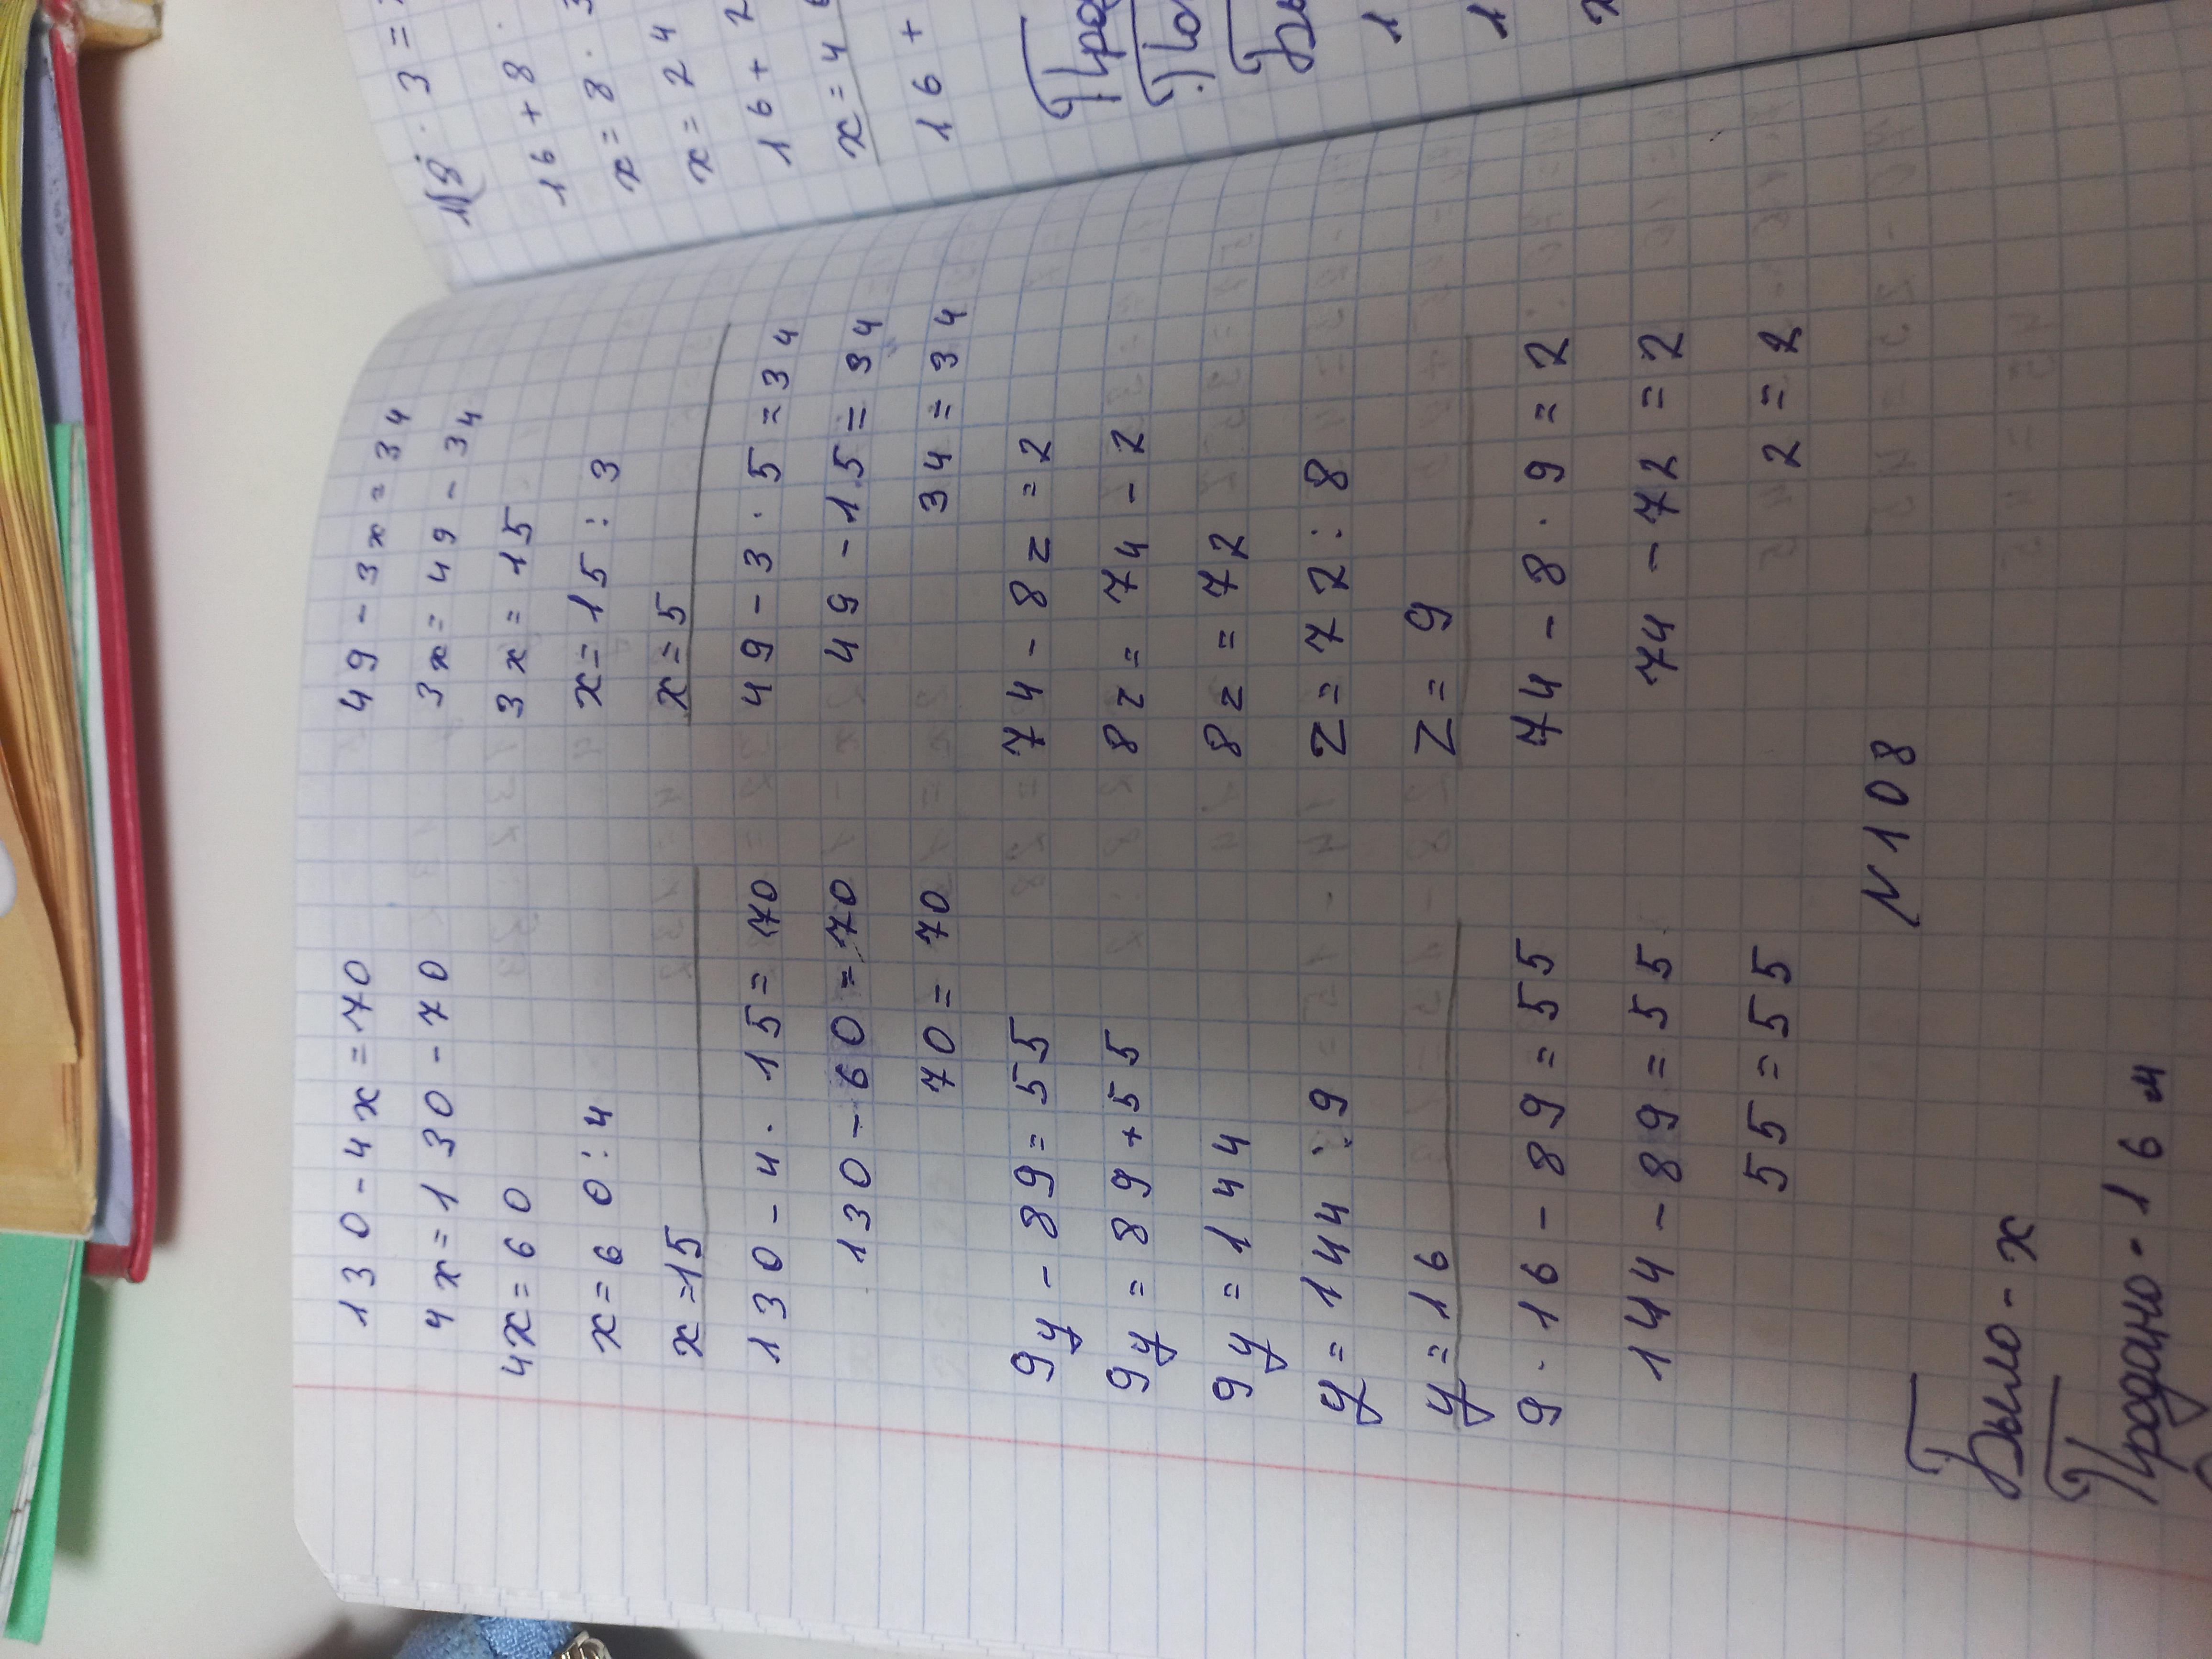 130-4x=70
4x=130-70
4x=60
x=60:4
x=15
130-4·15=70
130-60=70
70=70
49-3x=34
3x=49-34
3x=15
x=15:3
x=5
49-3·5=34
49-15=34
34=34
9y-89=55
9y=89+55
9y=144
y=144:9
y=16
9·16-89=55
144-89=55
55=55
74-8z=2
8z=74-2
8z=72
z=72:8
z=9
74-8·9=2
74-72=2
2=2
N108
Было-х
Продано-16м
3=
16+8
x=8·3
x=24
16+2
x=4
16+